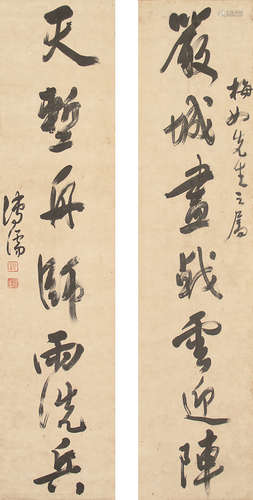 梅如先生之属
嚴城畫戟雲迎陣
天塹舟師雨洗兵
溥儒